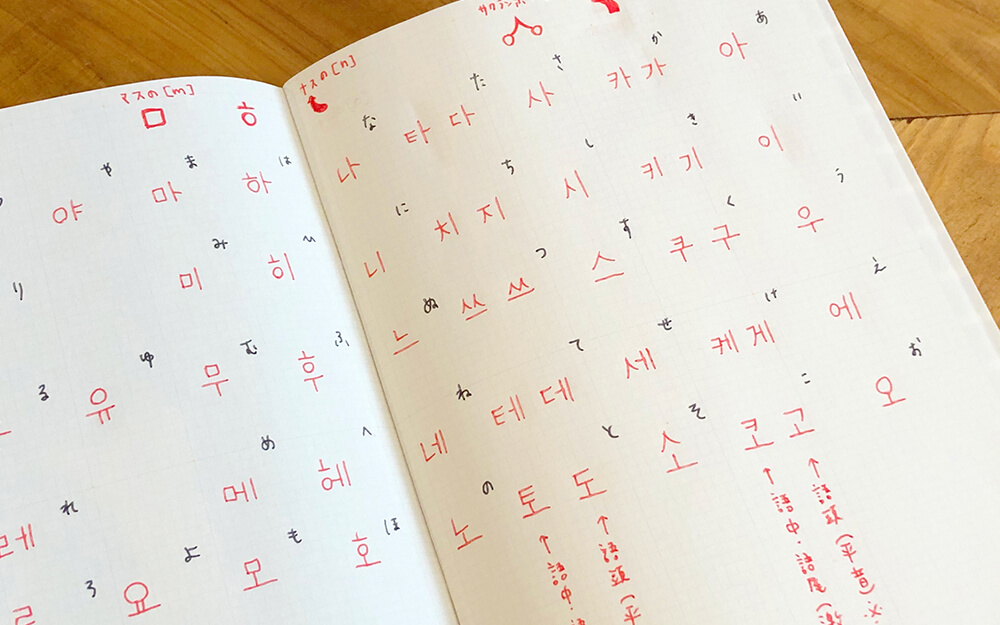 サクランボ
ナスの[n]
あ
아
い
이
う
우
え
에
お
오
か
카 가
き
키 기
く
쿠 구
け
케 게
こ
코 고
↑語頭(平音)※
↑語中・語尾(激
さ
사
し
시
す
스
せ
세
そ
소
た
타 다
ち
치 지
つ
쓰 쓰
て
테 데
と
토 도
↑語頭(平
↑語中・
な
나
に
니
ぬ
느
ね
네
の
노
マスの[m]
ㅁ ㅎ
は
하
ひ
히
ふ
후
へ
헤
ほ
호
ま
마
み
미
む
무
め
메
も
모
や
야
ゆ
유
よ
요
り
る
れ
레
ろ